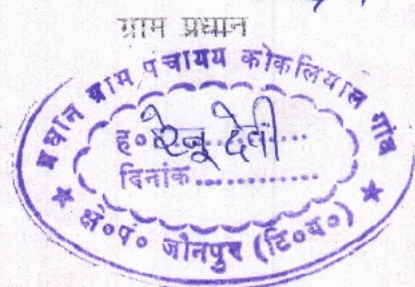 ग्राम प्रधान
प्रधान ग्राम पंचायय कोकलियाल गांव
ह० रेनू देवी
दिनांक............
★ क्षे०पं० जोनपुर (टि०ग०) ★